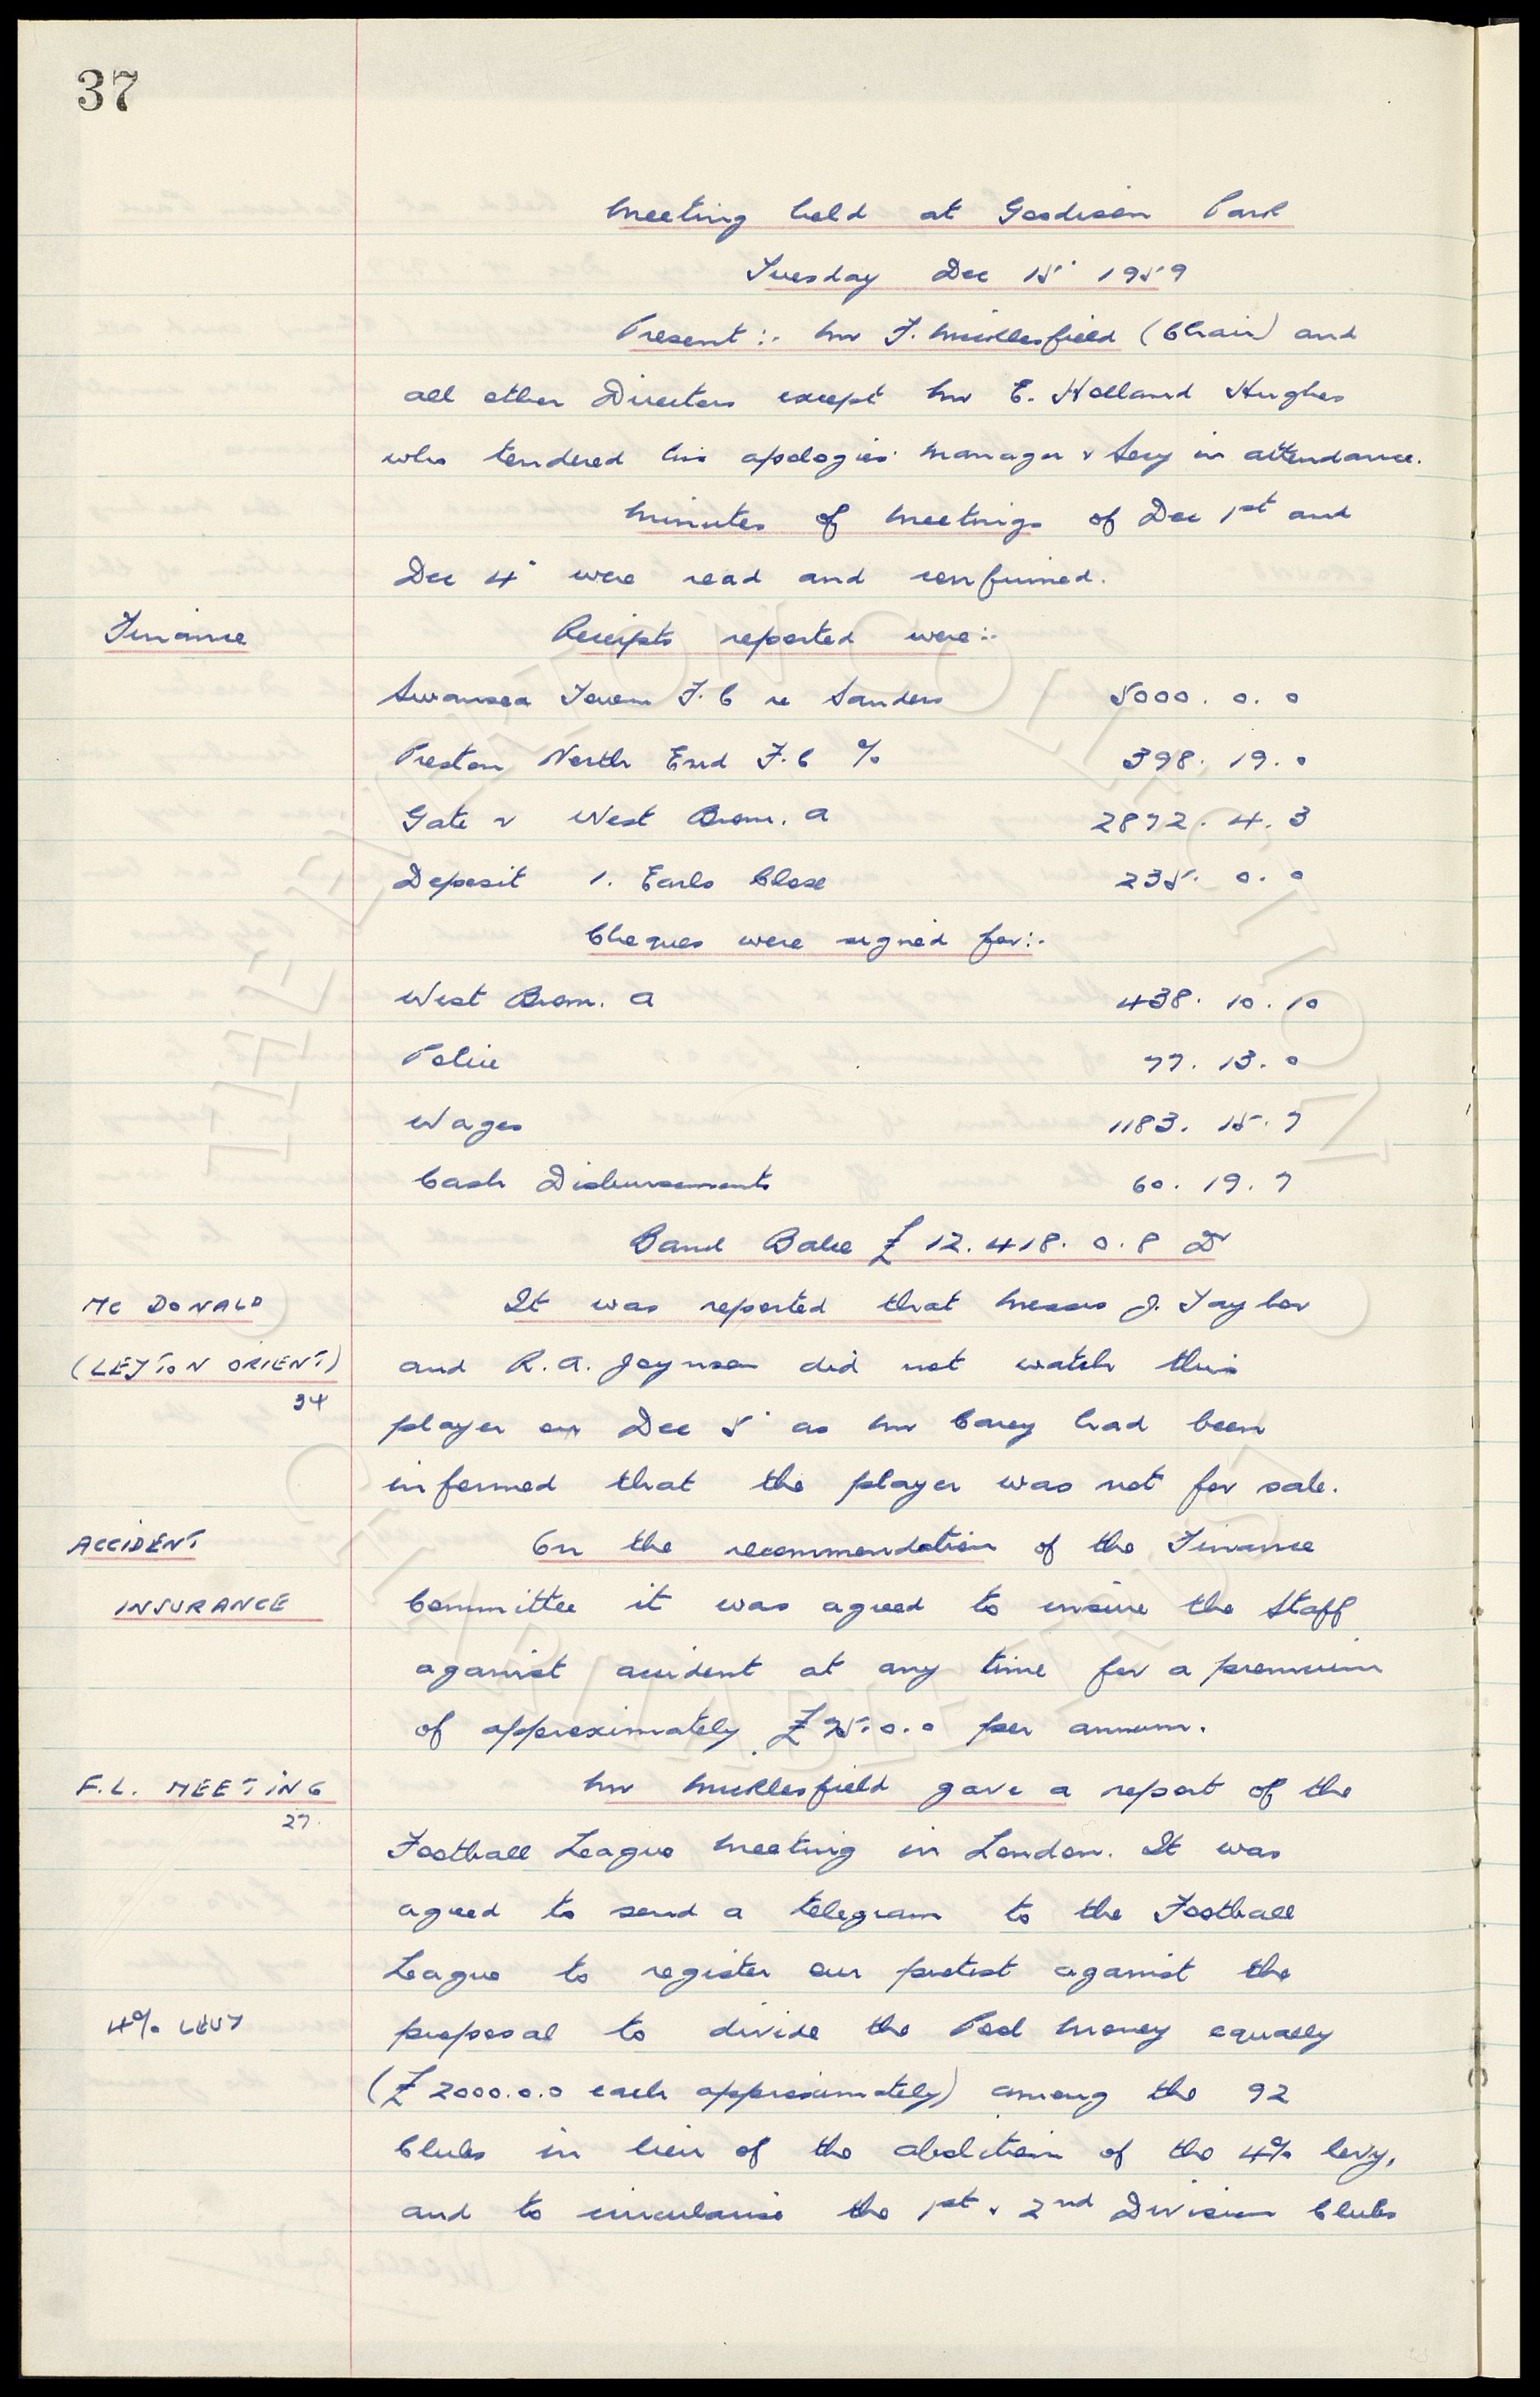 37
Meeting held at Goodison Park
Tuesday Dec 15" 1959
Present :- Mr F. Micklesfield (Chair) and
all other Directors except Mr E. Holland Hughes
who tendered his apologies. Manager & Secy in attendance.
Minutes of Meetings of Dec 1st and
Dec 4" were read and confirmed.
Finance
Receipts reported were :-
Swansea Town F.C re Sanders 5000. 0. 0
Preston North End F.C % 398. 19. 0
Gate v West Brom. A 2872. 4. 3
Deposit 1. Earls Close 235. 0. 0
Cheques were signed for :-
West Brom. A 438. 10. 10
Police 77. 13. 0
Wages 1183. 15. 7
Cash Disbursements 60. 19. 7
Bank Balce £12.418. 0. 8 Dr
Mc DONALD
(LEYTON ORIENT)
34
It was reported that Messrs J. Taylor
and R.A. Joynson did not watch this
player on Dec 5" as Mr Carey had been
informed that the player was not for sale.
ACCIDENT
INSURANCE
On the recommendation of the Finance
Committee it was agreed to insure the Staff
against accident at any time for a premium
of approximately £25.0.0 per annum.
F.L. MEETING
27
Mr Micklesfield gave a report of the
Football League Meeting in London. It was
agreed to send a telegram to the Football
League to register our protest against the
4% LEVY
proposal to divide the Pool Money equally
(£2000.0.0 each approximately) among the 92
Clubs in lieu of the abolition of the 4% levy,
and to circularise the 1st & 2nd Division Clubs